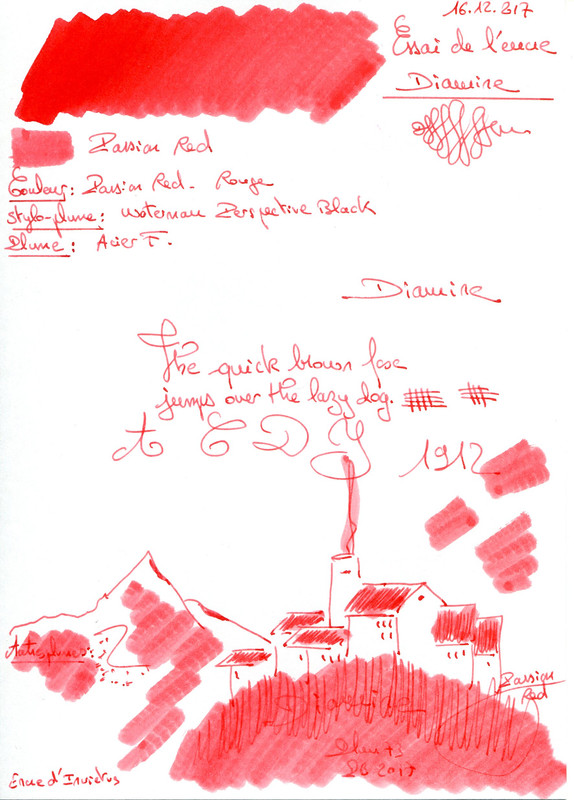 16.12.2017
Essai de l'encre
Diamine
Passion Red
Couleur: Passion Red - Rouge
Stylo-plume: Waterman Perspective Black
Plume: Acier F.
Diamine
The quick brown fox
jumps over the lazy dog.
1912
Autres plumes:
Passion
Red
Diamine
2017
Encre d'Invictus